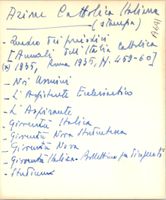 Azione Cattolica Italiana
(stampa)
- Quadro dei periodici
[Annali dell'Italia Cattolica
1935, Roma 1935, M. 459-60]
- Noi Uomini
- L'Assistente Ecclesiastico
- L'Aspirante
- Gioventù Italica
- Gioventù Nova
- Gioventù Italica - Bollettino
- Studium